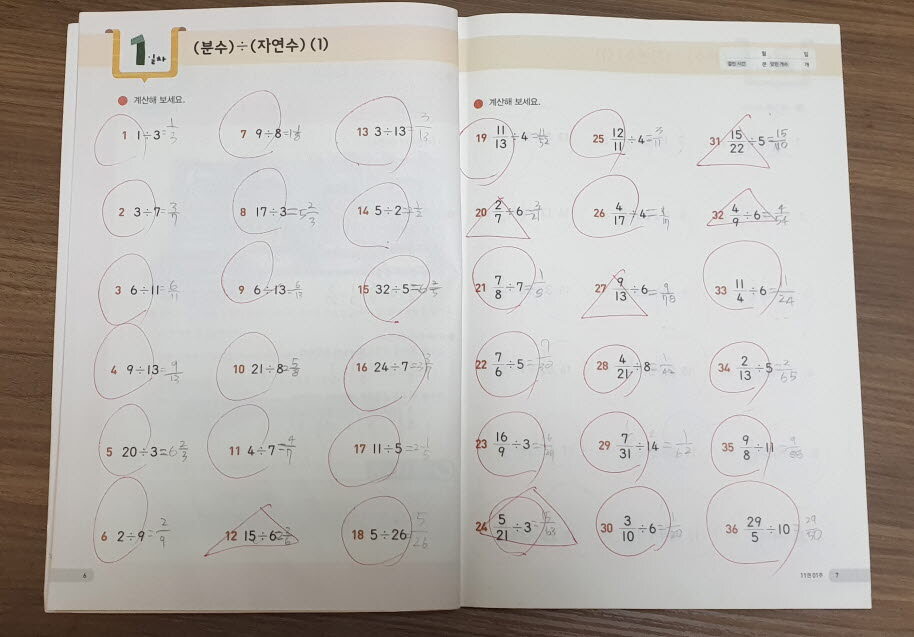 1 일차
(분수)÷(자연수) (1)
계산해 보세요.
1 1÷3=1/3
2 3÷7=3/7
3 6÷11=6/11
4 9÷13=9/13
5 20÷3=6 2/3
6 2÷9=2/9
7 9÷8=1 1/8
8 17÷3=5 2/3
9 6÷13=6/13
10 21÷8=2 5/8
11 4÷7=4/7
12 15÷6=2 3/6
13 3÷13=3/13
14 5÷2=
15 32÷5=6 2/5
16 24÷7=3 3/7
17 11÷5=2 1/5
18 5÷26=5/26
6
월 일
분 맞힌 개수 개
계산해 보세요.
19 11/13÷4=11/52
20 2/7÷6=
21 7/8÷7=1/8
22 7/6÷5=7/30
23 16/9÷3=
24 5/21÷3=5/63
25 12/11÷4=3/11
26 4/17÷4=1/17
27 9/13÷6=9/78
28 4/21÷8=1/42
29 7/31÷14=1/62
30 3/10÷6=1/20
31 15/22÷5=15/110
32 4/9÷6=4/54
33 11/4÷6=11/24
34 2/13÷5=2/65
35 9/8÷11=9/88
36 29/5÷10=29/50
11권 01주 7